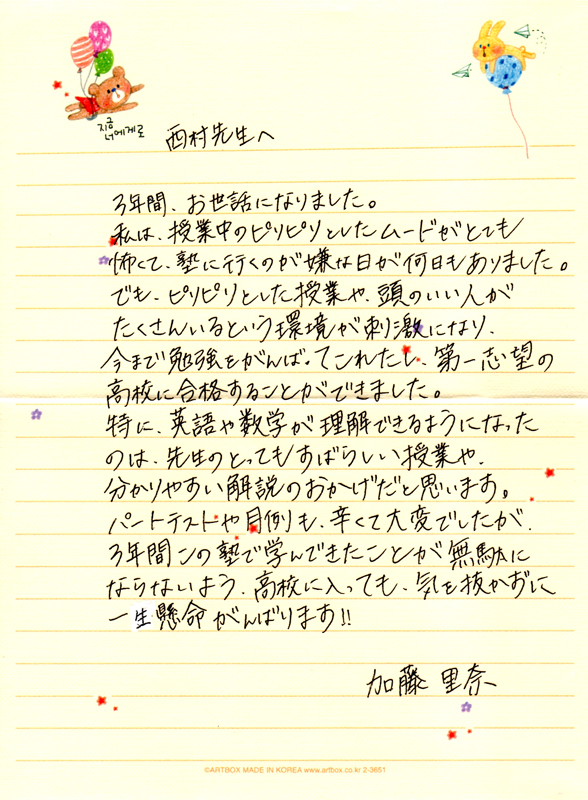 지금
너에게로
西村先生へ
3年間、お世話になりました。
私は、授業中のピリピリとしたムードがとても
怖くて、塾に行くのが嫌な日が何日もありました。
でも、ピリピリとした授業や、頭のいい人が
たくさんいるという環境が刺激になり、
今まで勉強をがんばってこれたし、第一志望の
高校に合格することができました。
特に、英語や数学が理解できるようになった
のは、先生のとってもすばらしい授業や、
分かりやすい解説のおかげだと思います。
パートテストや月例も、辛くて大変でしたが、
3年間この塾で学んできたことが無駄に
ならないよう、高校に入っても、気を抜かずに
一生懸命がんばります!!
加藤 里奈
©ARTBOX MADE IN KOREA www.artbox.co.kr 2-3651